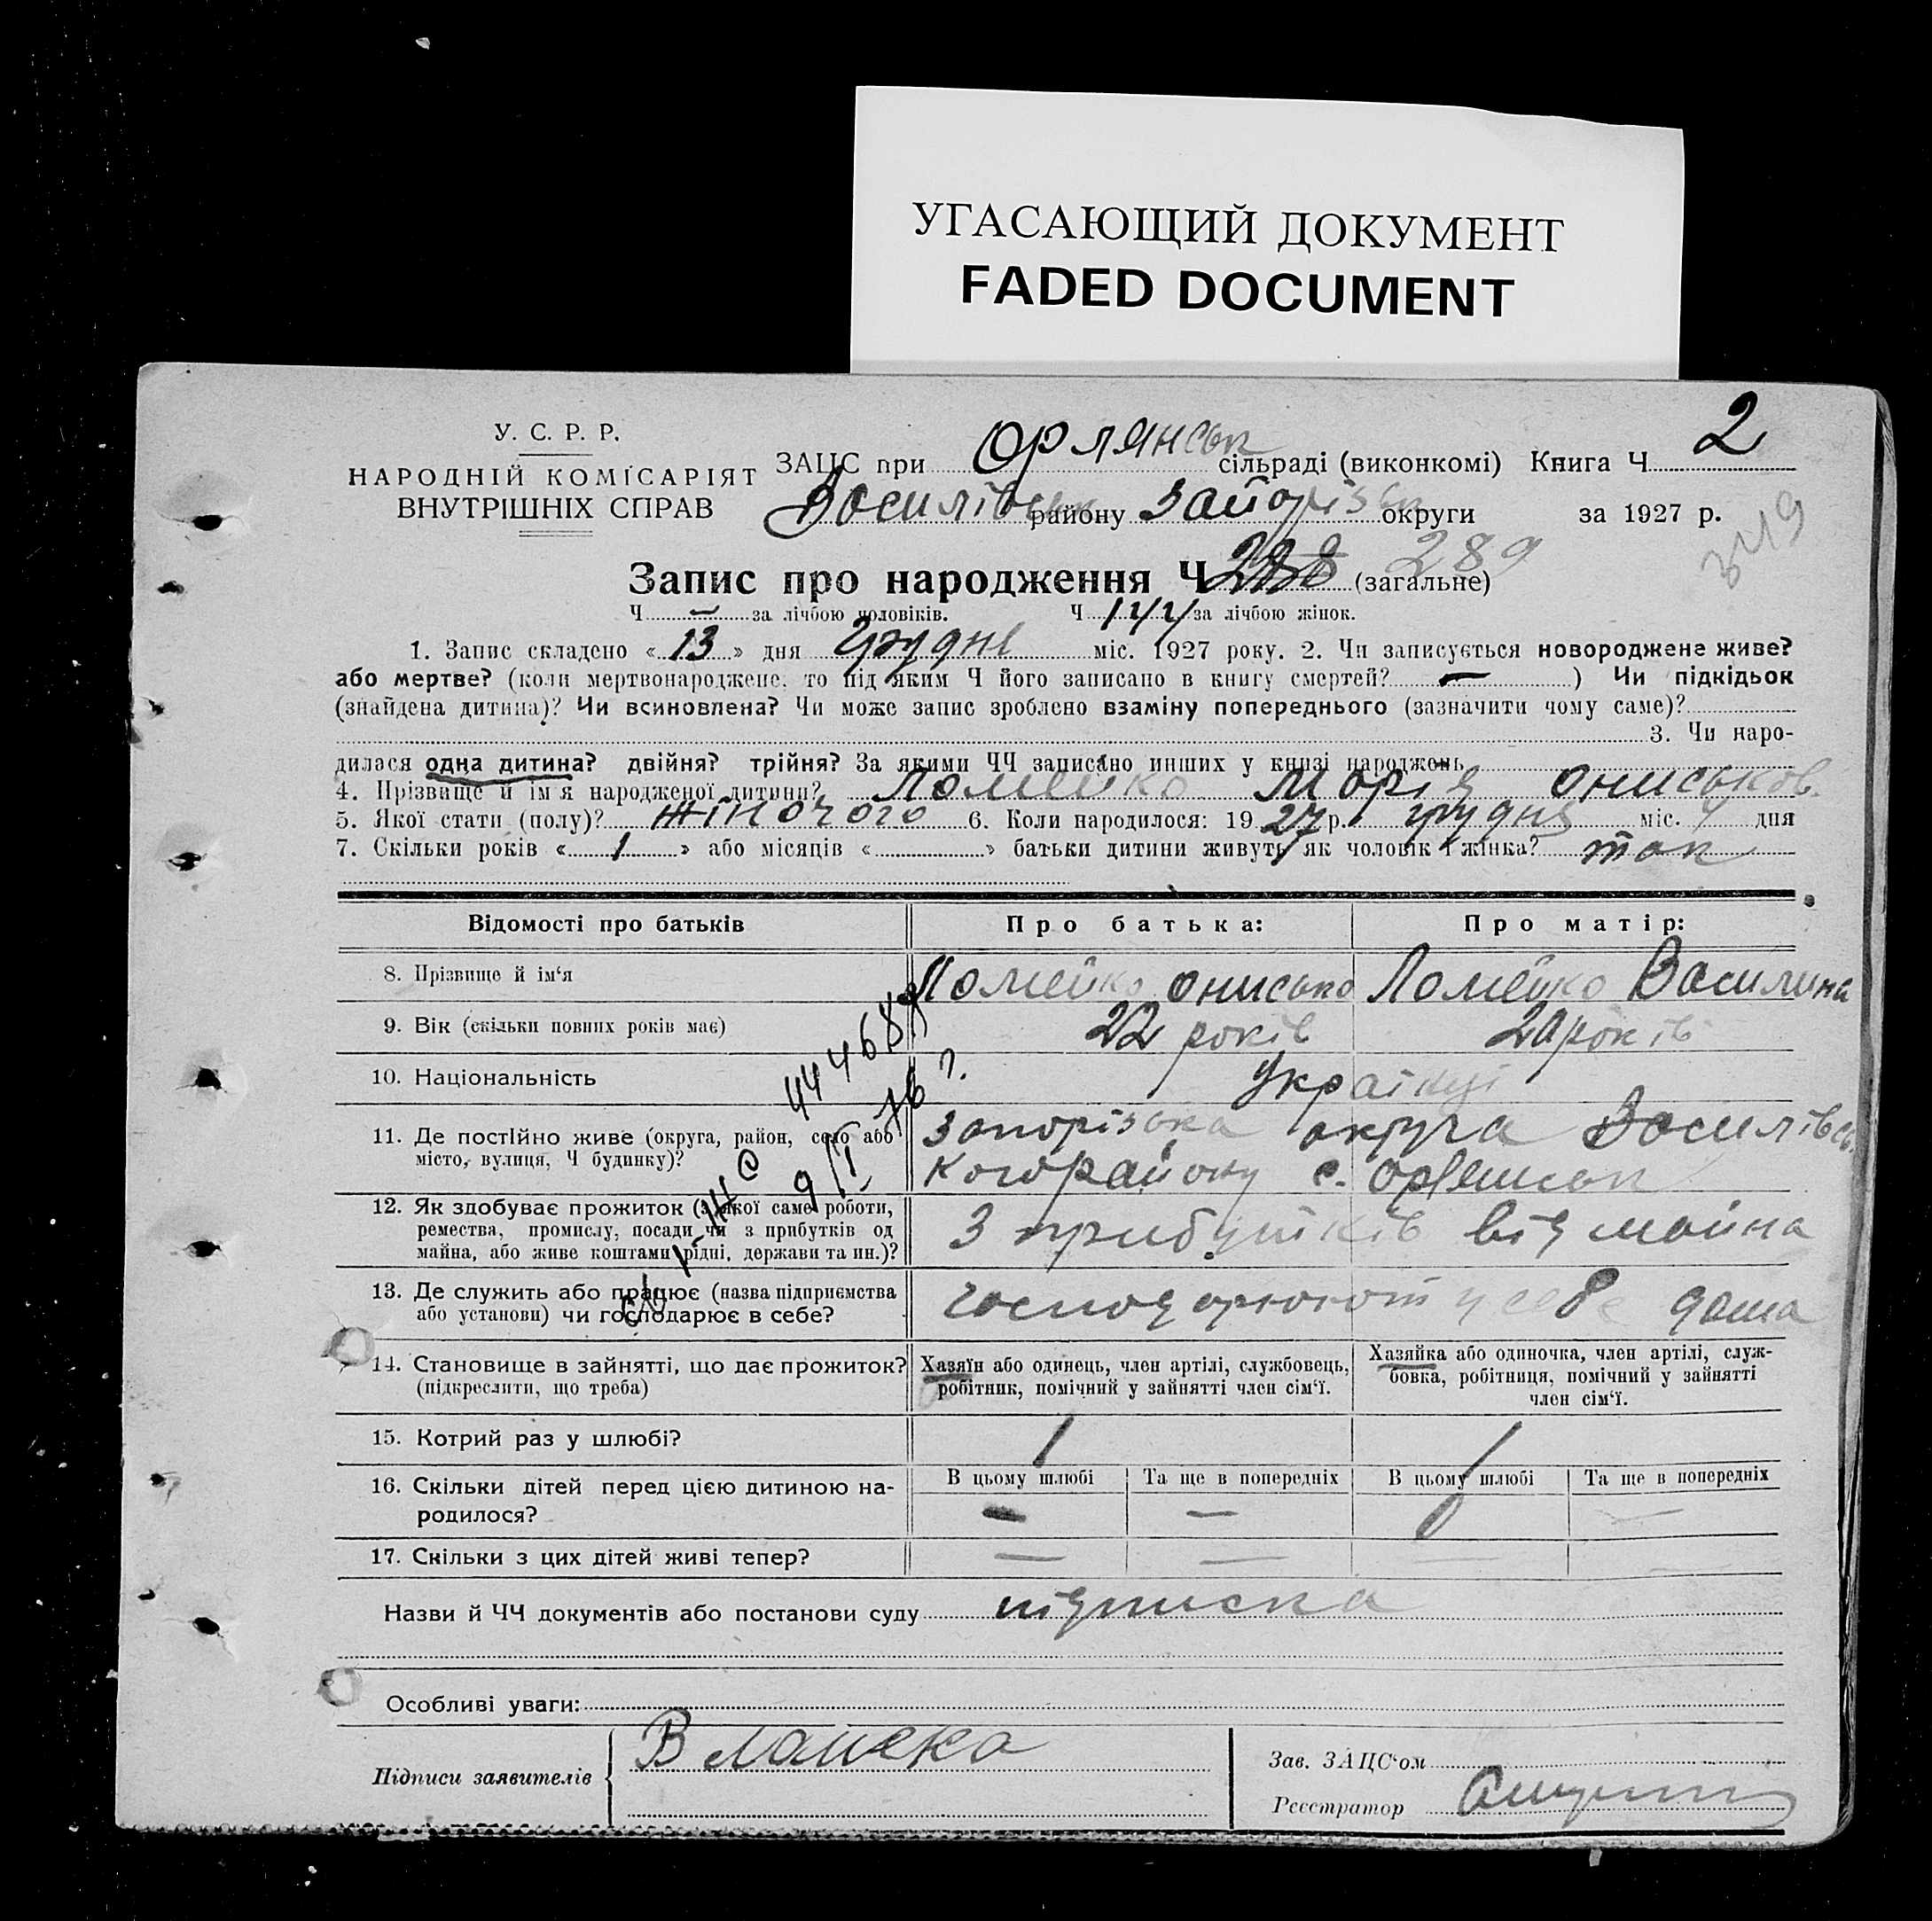 УГАСАЮЩИЙ ДОКУМЕНТ
FADED DOCUMENT
У. С. Р. Р.
НАРОДНІЙ КОМІСАРІЯТ
ВНУТРІШНІХ СПРАВ
ЗАЦС при Орлянськ сільраді (виконкомі) Книга Ч. 2
Василівськ району Запорізьк округи за 1927 р.
349
Запис про народження Ч 289 (загальне)
Ч. — за лічбою чоловіків. Ч. 144 за лічбою жінок.
1. Запис складено « 13 » дня Грудня міс. 1927 року. 2. Чи записується новороджене живе?
або мертве? (коли мертвонароджене, то під яким Ч його записано в книгу смертей? — ) Чи підкідьок
(знайдена дитина)? Чи всиновлена? Чи може запис зроблено взаміну попереднього (зазначити чому саме)?
3. Чи наро-
дилася одна дитина? двійня? трійня? За якими ЧЧ записано инших у книзі народжень
4. Прізвище й ім'я народженої дитини? Ломейко Марія Ониськов.
5. Якої стати (полу)? жіночого 6. Коли народилося: 1927 р. грудня міс. 4 дня
7. Скільки років « 1 » або місяців « » батьки дитини живуть як чоловік і жінка? так
Відомості про батьків Про батька: Про матір:
8. Прізвище й ім'я Ломейко Онисько Ломейко Василина
9. Вік (скільки повних років має) 22 років 20 років
10. Національність Українці
11. Де постійно живе (округа, район, село або Запорізька округа Василівсь
місто, вулиця, Ч будинку)? кого району с. Орлянськ
12. Як здобуває прожиток (з якої саме роботи,
ремества, промислу, посади чи з прибутків од
майна, або живе коштами рідні, держави та ин.)? З прибутків від майна
13. Де служить або працює (назва підприємства
або установи) чи господарює в себе? господарюють у себе дома
14. Становище в зайнятті, що дає прожиток?
(підкреслити, що треба)
Хазяїн або одинець, член артілі, службовець,
робітник, помічний у зайнятті член сім'ї.
Хазяйка або одиночка, член артілі, служ-
бовка, робітниця, помічний у зайнятті
член сім'ї.
15. Котрий раз у шлюбі? 1 1
16. Скільки дітей перед цією дитиною на-
родилося?
В цьому шлюбі Та ще в попередніх В цьому шлюбі Та ще в попередніх
— — —
17. Скільки з цих дітей живі тепер? — —
Назви й ЧЧ документів або постанови суду підписка
Особливі уваги:
Підписи заявителів
Зав. ЗАЦС'ом
Реєстратор